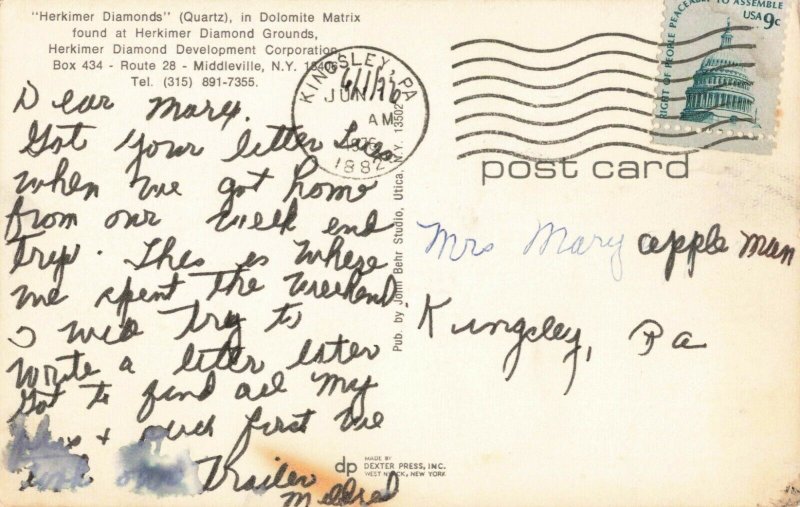 "Herkimer Diamonds" (Quartz), in Dolomite Matrix
found at Herkimer Diamond Grounds,
Herkimer Diamond Development Corporation
Box 434 - Route 28 - Middleville, N.Y. 13406
Tel. (315) 891-7355.
Dear Mary.
Got your letter
when we got home
from our week end
trip. This is where
we spent the weekend.
I will try to
write a letter later
got to find all my
+ first we
our trailer
Mildred
Pub. by John Behr Studio, Utica, N.Y. 13502
KINGSLEY, PA
JUN 1
6/1/76
AM
1976
1882
RIGHT OF PEOPLE PEACEABLY TO ASSEMBLE
USA 9c
post card
Mrs Mary appleman
Kingsley, Pa
dp
MADE BY
DEXTER PRESS, INC.
WEST NYACK, NEW YORK